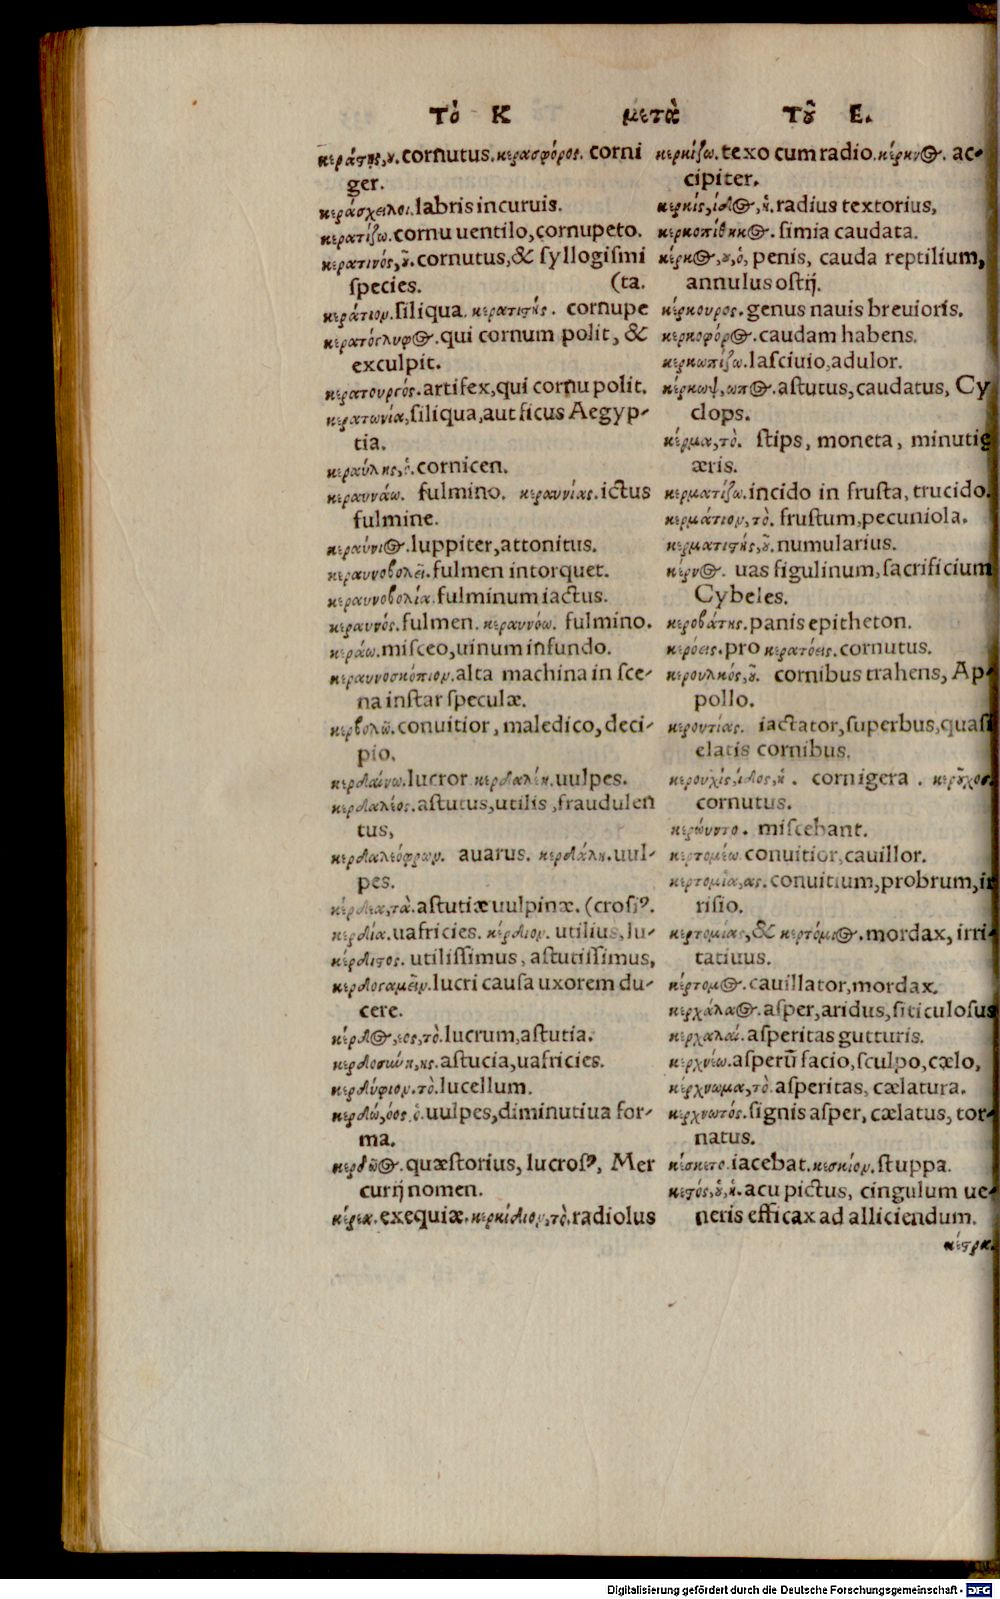 Τὸ Κ μετὰ Τοῦ Ε.
κεράστης,ου.cornutus.κερασφόρος. corni
ger.
κεράσχειλοι.labris incuruis.
κερατίζω.cornu uentilo,cornupeto.
κερατινός,οῦ.cornutus,& syllogismi
species. (ta.
κεράτιον.siliqua. κερατιστής. cornupe
κερατόγλυφος.qui cornum polit, &
exculpit.
κερατουργός.artifex,qui cornu polit.
κερατωνία,siliqua,aut ficus Aegyp-
tia.
κεραύλης,ὁ.cornicen.
κεραυνάω. fulmino. κεραυνίας.ictus
fulmine.
κεραύνιος.Iuppiter,attonitus.
κεραυνοβολεῖ.fulmen intorquet.
κεραυνοβολία.fulminum iactus.
κεραυνός.fulmen. κεραυνόω. fulmino.
κεράω.misceo,uinum infundo.
κεραυνοσκόπιον.alta machina in sce-
na instar speculæ.
κερβολῶ.conuitior, maledico, deci-
pio.
κερδαίνω.lucror κερδαλέη.uulpes.
κερδαλέος.astutus,utilis,fraudulen
tus,
κερδαλεόφρων. auarus. κερδάλη.uul-
pes.
κέρδεα,τὰ.astutiæ uulpinæ. (crosꝰ.
κερδία.uafricies. κέρδιον. utilius, lu-
κέρδιστος. utilissimus, astutissimus,
κερδογαμεῖν.lucri causa uxorem du-
cere.
κέρδος,εος,τὸ.lucrum,astutia.
κερδοσύνη,ης.astucia,uafricies.
κερδύφιον.τὸ.lucellum.
κερδώ,όος.ὁ.uulpes,diminutiua for-
ma.
κερδῷος.quæstorius, lucrosꝰ, Mer
curij nomen.
κέρεα.exequiæ.κερκίδιον,τὸ.radiolus
κερκίζω.texo cum radio.κέρκνος. ac-
cipiter.
κερκίς,ίδος,ἡ.radius textorius,
κερκοπίθηκος. simia caudata.
κέρκος,ου,ὁ, penis, cauda reptilium,
annulus ostij.
κέρκουρος.genus nauis breuioris.
κερκοφόρος.caudam habens.
κερκωπίζω.lasciuio,adulor.
κέρκωψ,ωπος.astutus,caudatus, Cy
clops.
κέρμα,τὸ. stips, moneta, minutię
æris.
κερματίζω.incido in frusta, trucido.
κερμάτιον,τὸ. frustum,pecuniola.
κερματιστής,οῦ.numularius.
κέρνος. uas figulinum,sacrificium
Cybeles.
κεροβάτης.panis epitheton.
κερόεις.pro κερατόεις.cornutus.
κερουλκός,οῦ. cornibus trahens, Ap-
pollo.
κερουτίας. iactator,superbus,quasi
elatis cornibus.
κερουχίς,ίδος,ἡ. cornigera. κεροῦχος.
cornutus.
κερώωντο. miscebant.
κερτομέω.conuitior,cauillor.
κερτομία,ας.conuitium,probrum,ir
risio.
κερτομίας,& κερτόμιος.mordax, irri-
tatiuus.
κέρτομος.cauillator,mordax.
κερχάλαος.asper,aridus,siticulosus
κερχαλαί.asperitas gutturis.
κερχνέω.asperũ facio,sculpo,cælo,
κέρχνωμα,τὸ.asperitas, cælatura.
κερχνωτός.signis asper, cælatus, tor-
natus.
κέσκετο.iacebat.κεσκίον.stuppa.
κεστός,οῦ,ἡ.acu pictus, cingulum ue-
neris efficax ad alliciendum.
κέστρα.
Digitalisierung gefördert durch die Deutsche Forschungsgemeinschaft - DFG